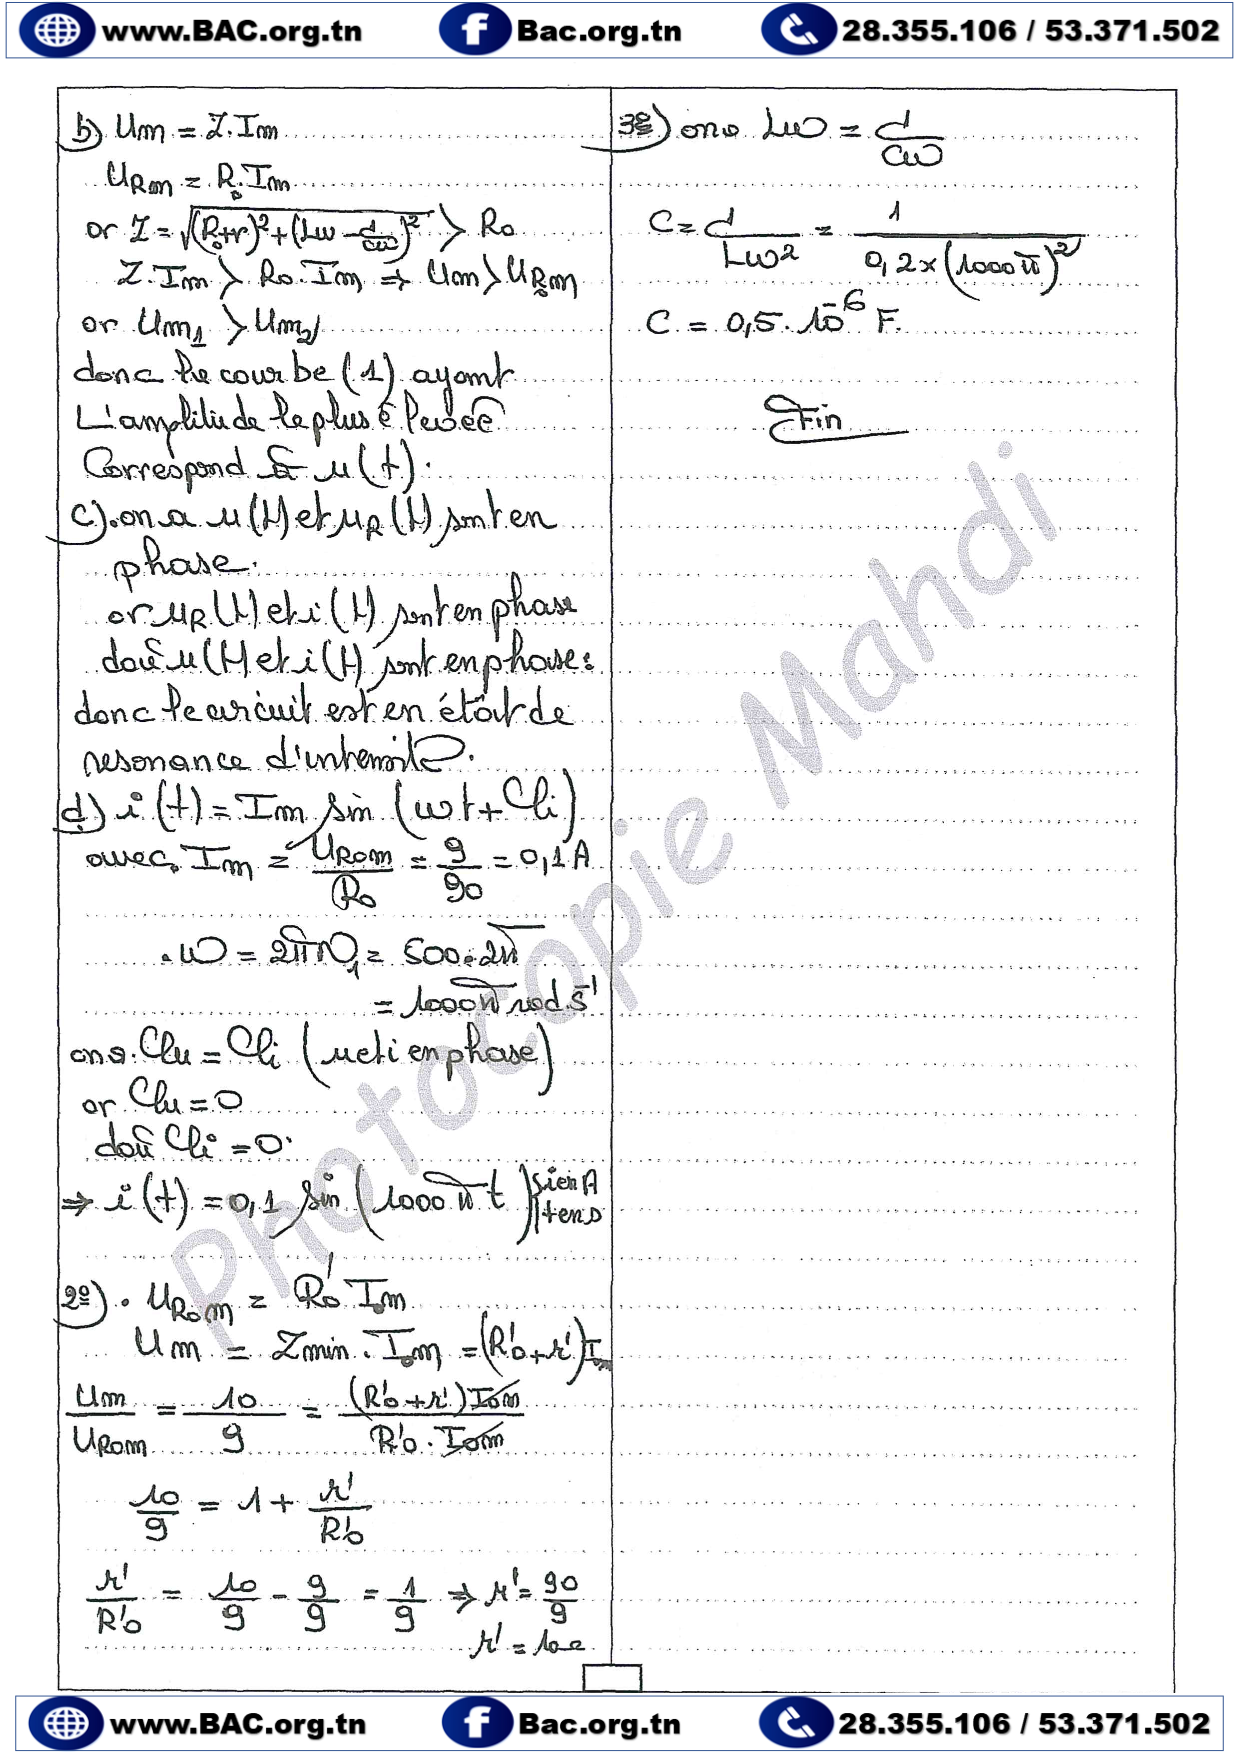 www.BAC.org.tn Bac.org.tn 28.355.106 / 53.371.502
b) Um = Z.Im
URm = R₀.Im
or Z = √((R₀+r)² + (Lω - 1/Cω)²) > R₀
Z.Im > R₀.Im ⇒ Um > UR₀m
or Um₁ > Um₂
donc la courbe (1) ayant
L'amplitude la plus élevée
Correspond à u(t).
c) on a u(t) et uR(t) sont en
phase.
or uR(t) et i(t) sont en phase
d'où u(t) et i(t) sont en phase :
donc le circuit est en état de
resonance d'intensité.
d) i(t) = Im sin(ωt + φi)
avec. Im = UR₀m/R₀ = 9/90 = 0,1 A
. ω = 2πN₁ = 500.2π
= 1000π rad.s⁻¹
on a. φu = φi (u et i en phase)
or φu = 0
d'où φi = 0.
⇒ i(t) = 0,1 sin(1000πt) | i en A
| t en s
2º) . UR₀m = R'₀ I₀m
Um = Zmin . I₀m = (R'₀ + r') I₀m
Um/UR₀m = 10/9 = (R'₀ + r') I₀m / R'₀ . I₀m
10/9 = 1 + r'/R'₀
r'/R'₀ = 10/9 - 9/9 = 1/9 ⇒ r' = 90/9
r' = 10 Ω
3º) on a Lω = 1/Cω
C = 1/Lω² = 1/(0,2 × (1000π)²)
C = 0,5 . 10⁻⁶ F.
Fin
Photocopie Mahdi
www.BAC.org.tn Bac.org.tn 28.355.106 / 53.371.502